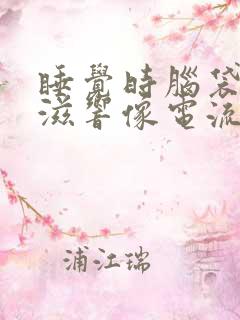 睡覺時腦袋
滋響像電流
浦江瑞